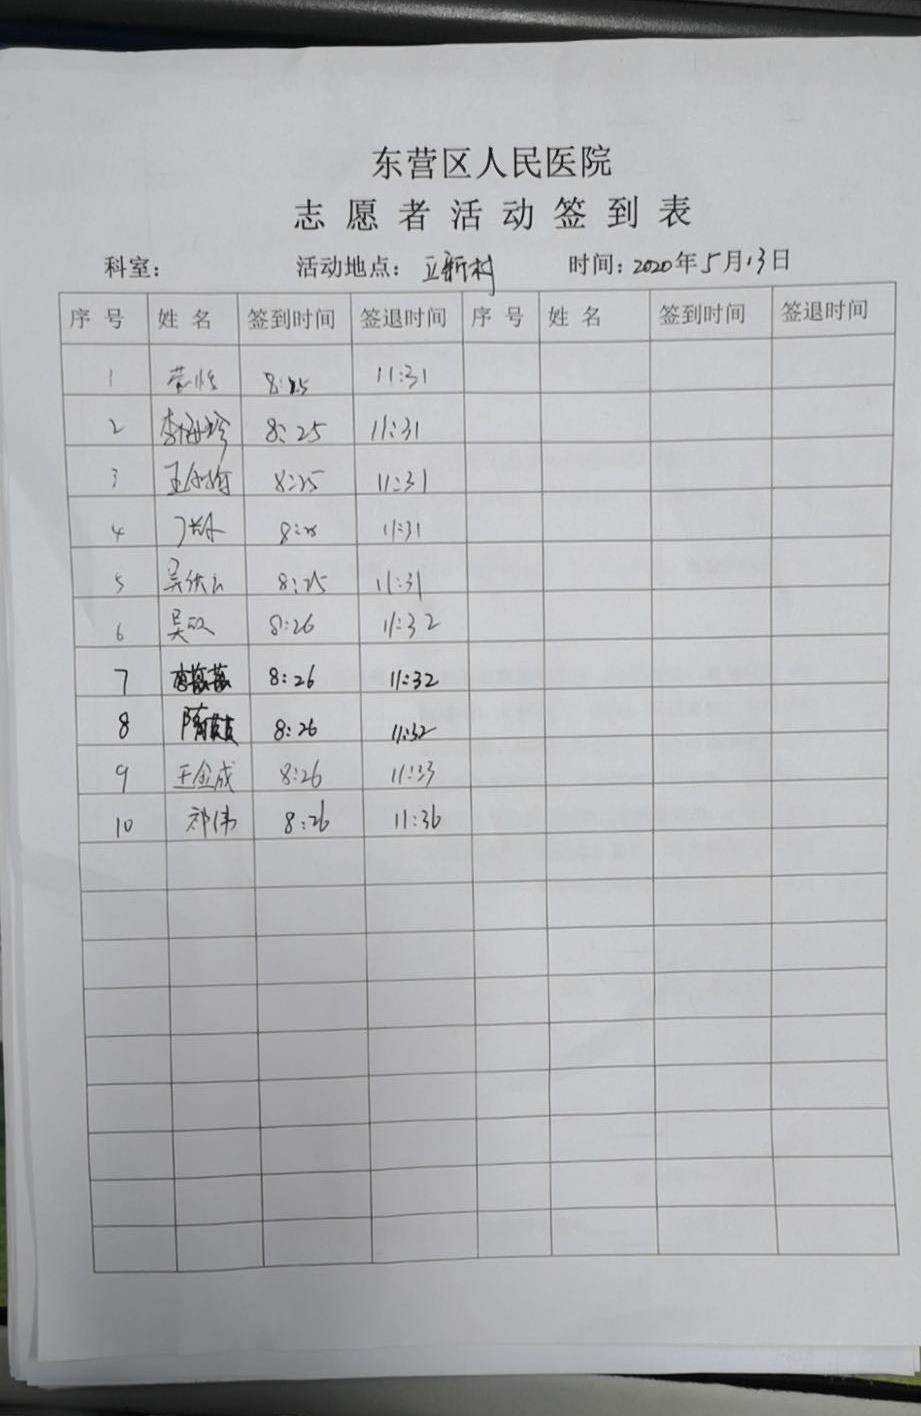 东营区人民医院
志愿者活动签到表
科室： 活动地点：立新村 时间：2020年5月13日
序号 姓名 签到时间 签退时间 序号 姓名 签到时间 签退时间
1 8:25 11:31
2 李海珍 8:25 11:31
3 8:25 11:31
4 11:31
5 8:25 11:31
6 8:26 11:32
7 8:26 11:32
8 8:26 11:32
9 王金成 8:26 11:33
10 祁伟 8:26 11:36